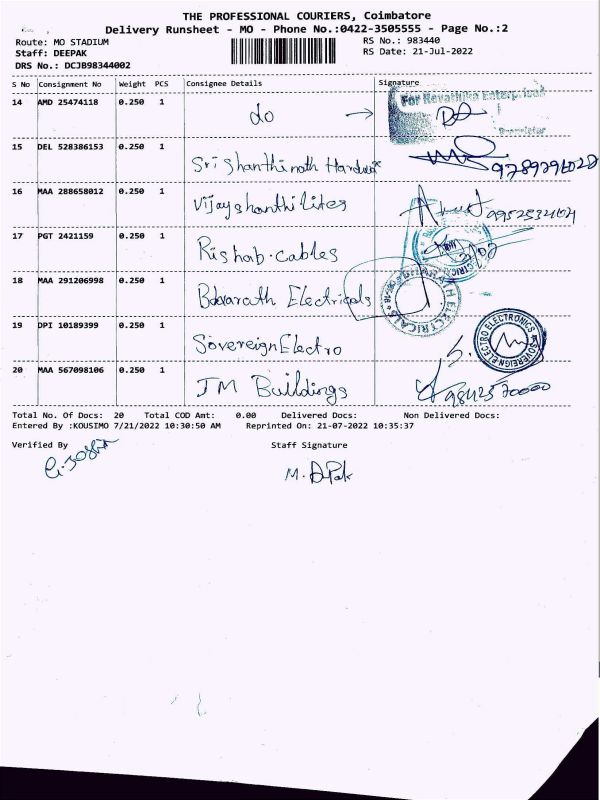 THE PROFESSIONAL COURIERS, Coimbatore
Delivery Runsheet - MO - Phone No.:0422-3505555 - Page No.:2
Route: MO STADIUM RS No.: 983440
Staff: DEEPAK RS Date: 21-Jul-2022
DRS No.: DCJB98344002
S No Consignment No Weight PCS Consignee Details Signature
14 AMD 25474118 0.250 1 do →
For Revathika Enterprises
Proprietor
15 DEL 528386153 0.250 1 Sri Shanthinath Hardware
9789796028
16 MAA 288658012 0.250 1 Vijayshanthi Lites
17 PGT 2421159 0.250 1 Rishab.cables
18 MAA 291206998 0.250 1 Bharath Electricals
BHARATH ELECTRICALS
19 DPI 10189399 0.250 1 Sovereign Electro
SOVEREIGN ELECTRO ELECTRONICS
20 MAA 567098106 0.250 1 JM Buildings 9842570000
Total No. Of Docs: 20 Total COD Amt: 0.00 Delivered Docs: Non Delivered Docs:
Entered By :KOUSIMO 7/21/2022 10:30:50 AM Reprinted On: 21-07-2022 10:35:37
Verified By Staff Signature
M. DPak